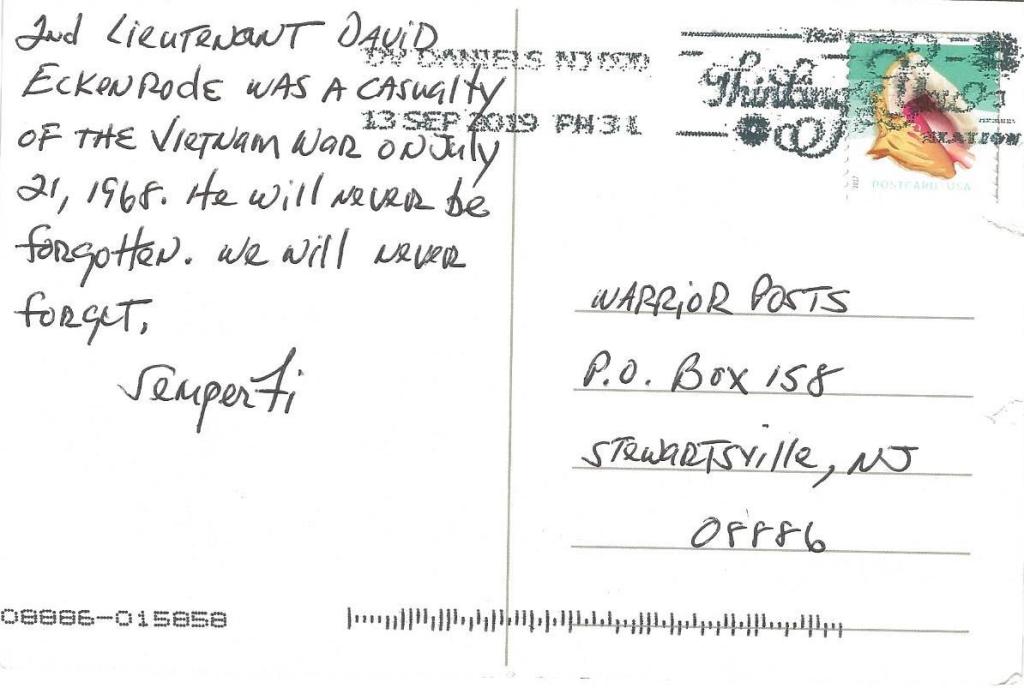 2nd Lieutenant David
Eckenrode was a casualty
of the Vietnam War on July
21, 1968. He will never be
forgotten. We will never
forget.
Semper Fi
DV DANIELS NJ 070
13 SEP 2019 PM 3 L
Thinking
POSTCARD USA
2017
Warrior Posts
P.O. Box 158
Stewartsville, NJ
08886
08886-015858